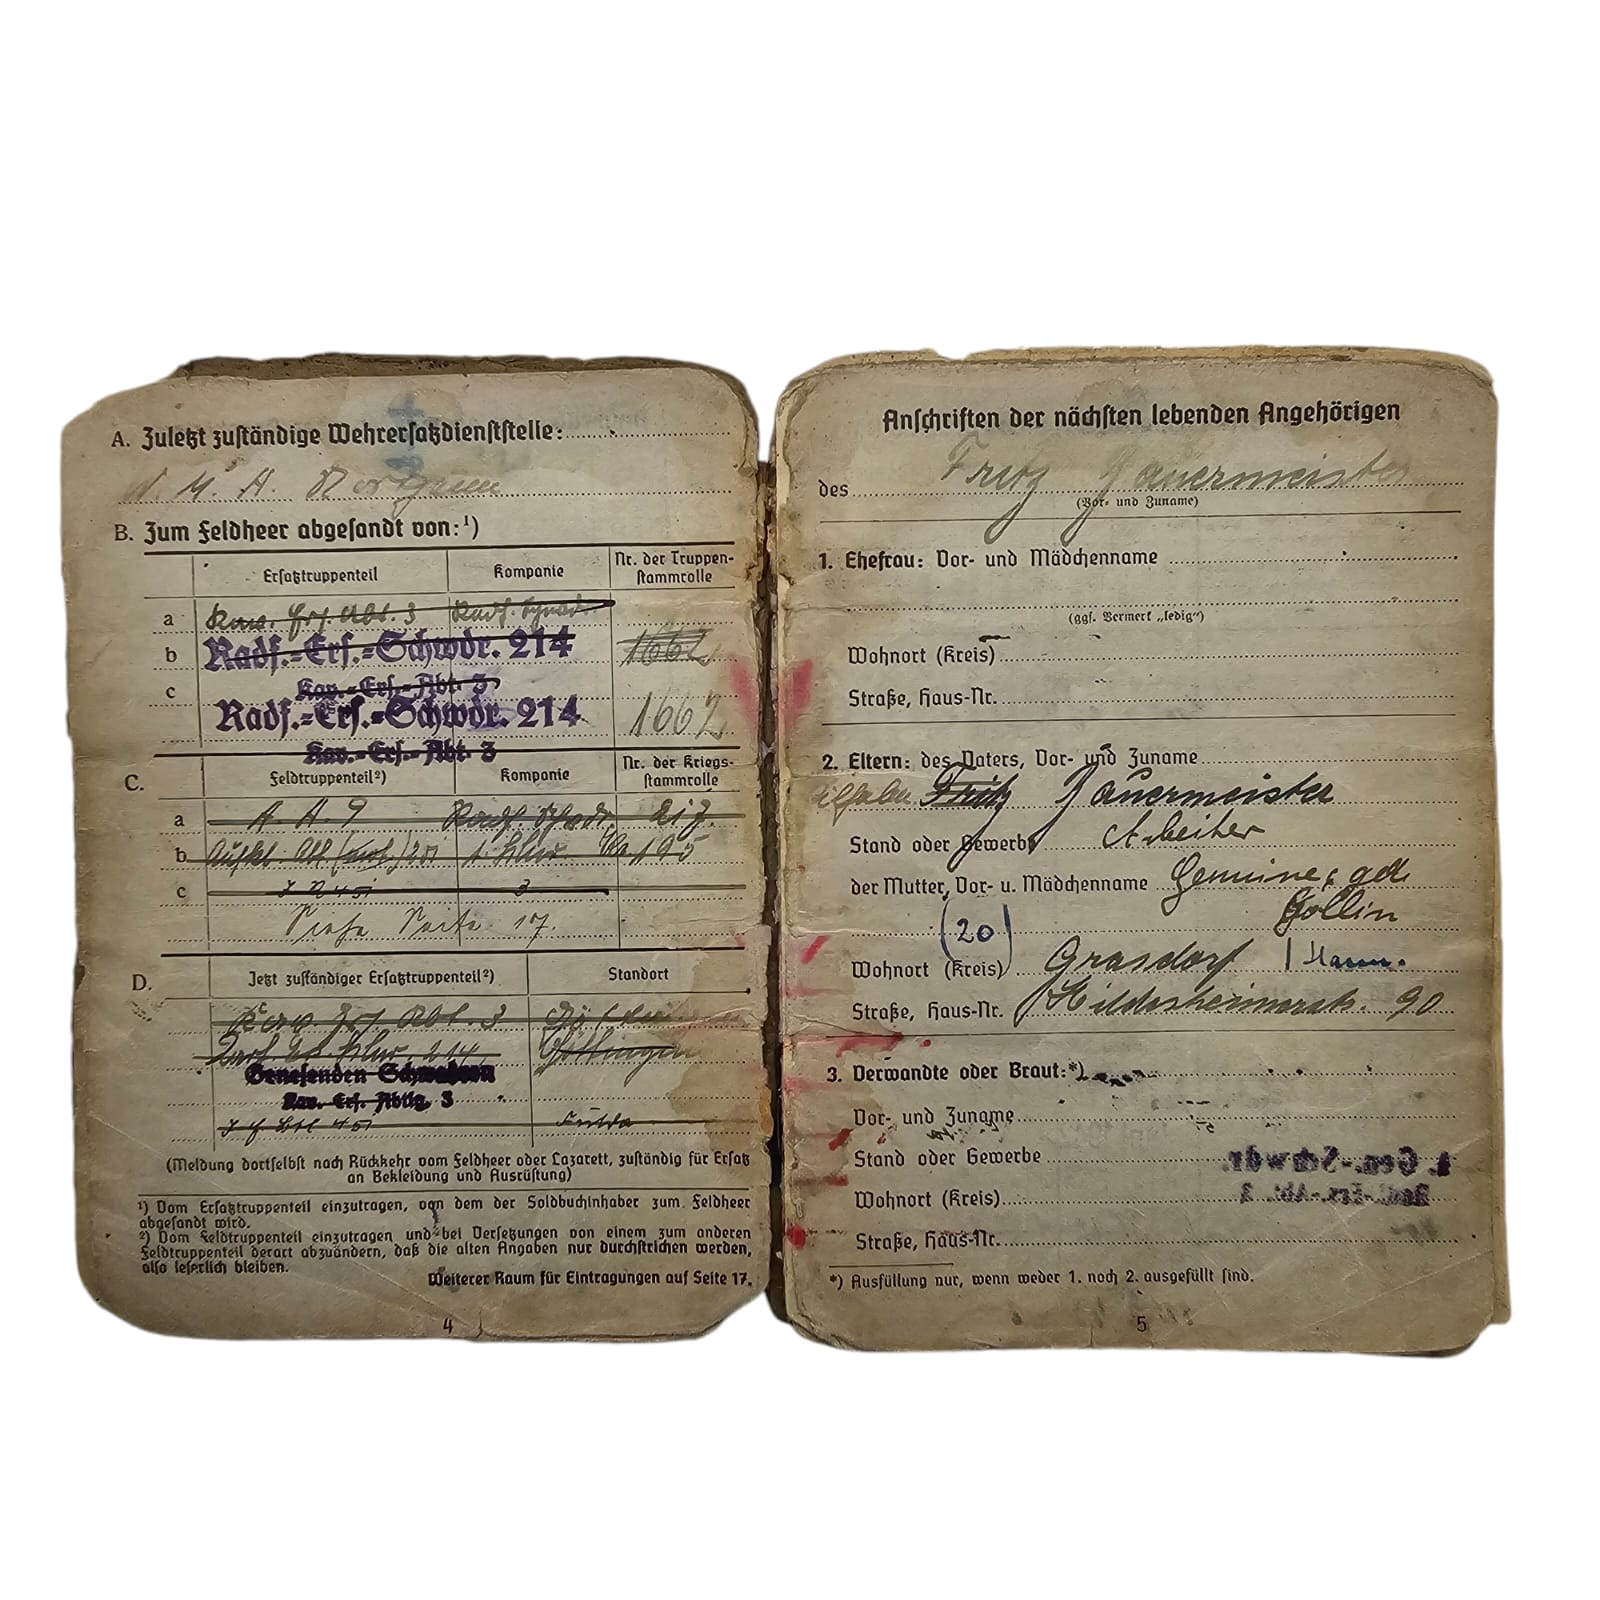 A. Zuletzt zuständige Wehrersatzdienststelle:
B. Zum Feldheer abgesandt von:¹)
Ersatztruppenteil Kompanie Nr. der Truppen-
stammrolle
a Abt. 3
b Radf.=Ers.=Schwdr. 214 1662
Kav.=Ers.=Abt. 3
c Radf.=Ers.=Schwdr. 214 1662
Kav.=Ers.=Abt. 3
C. Feldtruppenteil²) Kompanie Nr. der Kriegs-
stammrolle
a A. A. 9
b Aufkl. Abt.
c 3
Siehe Seite 17.
D. Jetzt zuständiger Ersatztruppenteil²) Standort
Abt. 3
214 Göttingen
Genesenden Schwadron
Kav. Ers. Abtlg. 3
Fulda
(Meldung dortselbst nach Rückkehr vom Feldheer oder Lazarett, zuständig für Ersatz
an Bekleidung und Ausrüstung)
¹) Vom Ersatztruppenteil einzutragen, von dem der Soldbuchinhaber zum Feldheer
abgesandt wird.
²) Vom Feldtruppenteil einzutragen und bei Versetzungen von einem zum anderen
Feldtruppenteil derart abzuändern, daß die alten Angaben nur durchstrichen werden,
also leserlich bleiben.
Weiterer Raum für Eintragungen auf Seite 17.
4
Anschriften der nächsten lebenden Angehörigen
des Fritz Jauermeister
(Vor- und Zuname)
1. Ehefrau: Vor- und Mädchenname
(ggf. Vermerk „ledig“)
Wohnort (Kreis)
Straße, Haus-Nr.
2. Eltern: des Vaters, Vor- und Zuname
Fritz Jauermeister
Stand oder Gewerbe Arbeiter
der Mutter, Vor- u. Mädchenname
Göllin
(20)
Wohnort (Kreis) Grasdorf / Hann.
Straße, Haus-Nr. Hildesheimerstr. 90
3. Verwandte oder Braut:*)
Vor- und Zuname
Stand oder Gewerbe
Wohnort (Kreis)
Straße, Haus-Nr.
*) Ausfüllung nur, wenn weder 1. noch 2. ausgefüllt sind.
5